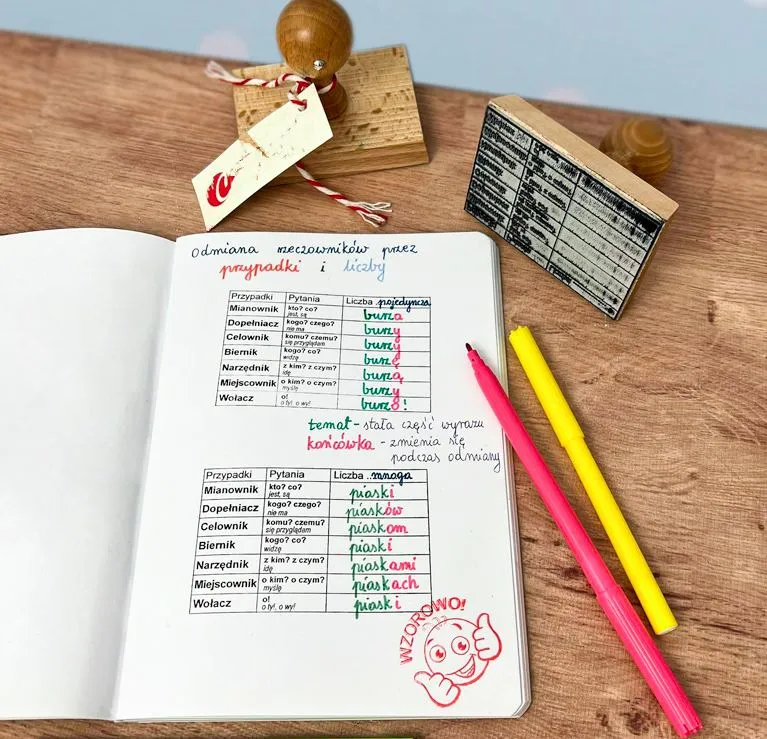 Odmiana rzeczowników przez
przypadki i liczby
Przypadki Pytania Liczba pojedyncza
Mianownik kto? co? jest, są burza
Dopełniacz kogo? czego? nie ma burzy
Celownik komu? czemu? się przyglądam burzy
Biernik kogo? co? widzę burzę
Narzędnik z kim? z czym? idę burzą
Miejscownik o kim? o czym? myślę burzy
Wołacz o! o ty!, o wy! burzo!
temat - stała część wyrazu
końcówka - zmienia się
podczas odmiany
Przypadki Pytania Liczba ..mnoga
Mianownik kto? co? jest, są piaski
Dopełniacz kogo? czego? nie ma piasków
Celownik komu? czemu? się przyglądam piaskom
Biernik kogo? co? widzę piaski
Narzędnik z kim? z czym? idę piaskami
Miejscownik o kim? o czym? myślę piaskach
Wołacz o! o ty!, o wy! piaski
WZOROWO!